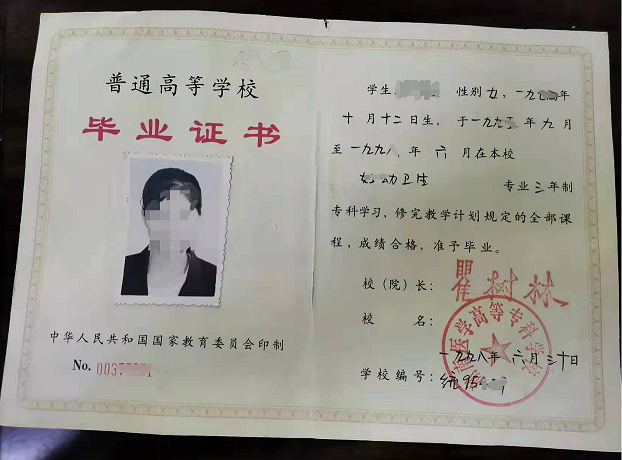 普通高等学校
毕业证书
中华人民共和国国家教育委员会印制
No. 003
学生 性别女,一九七 年
十月十二日生,于一九九 年九月
至一九九八年六月在本校
妇幼卫生 专业三年制
专科学习,修完教学计划规定的全部课
程,成绩合格,准予毕业。
校(院)长: 瞿树林
校 名:
医学高等专科学校
一九九八年六月三十日
学校编号: 统95